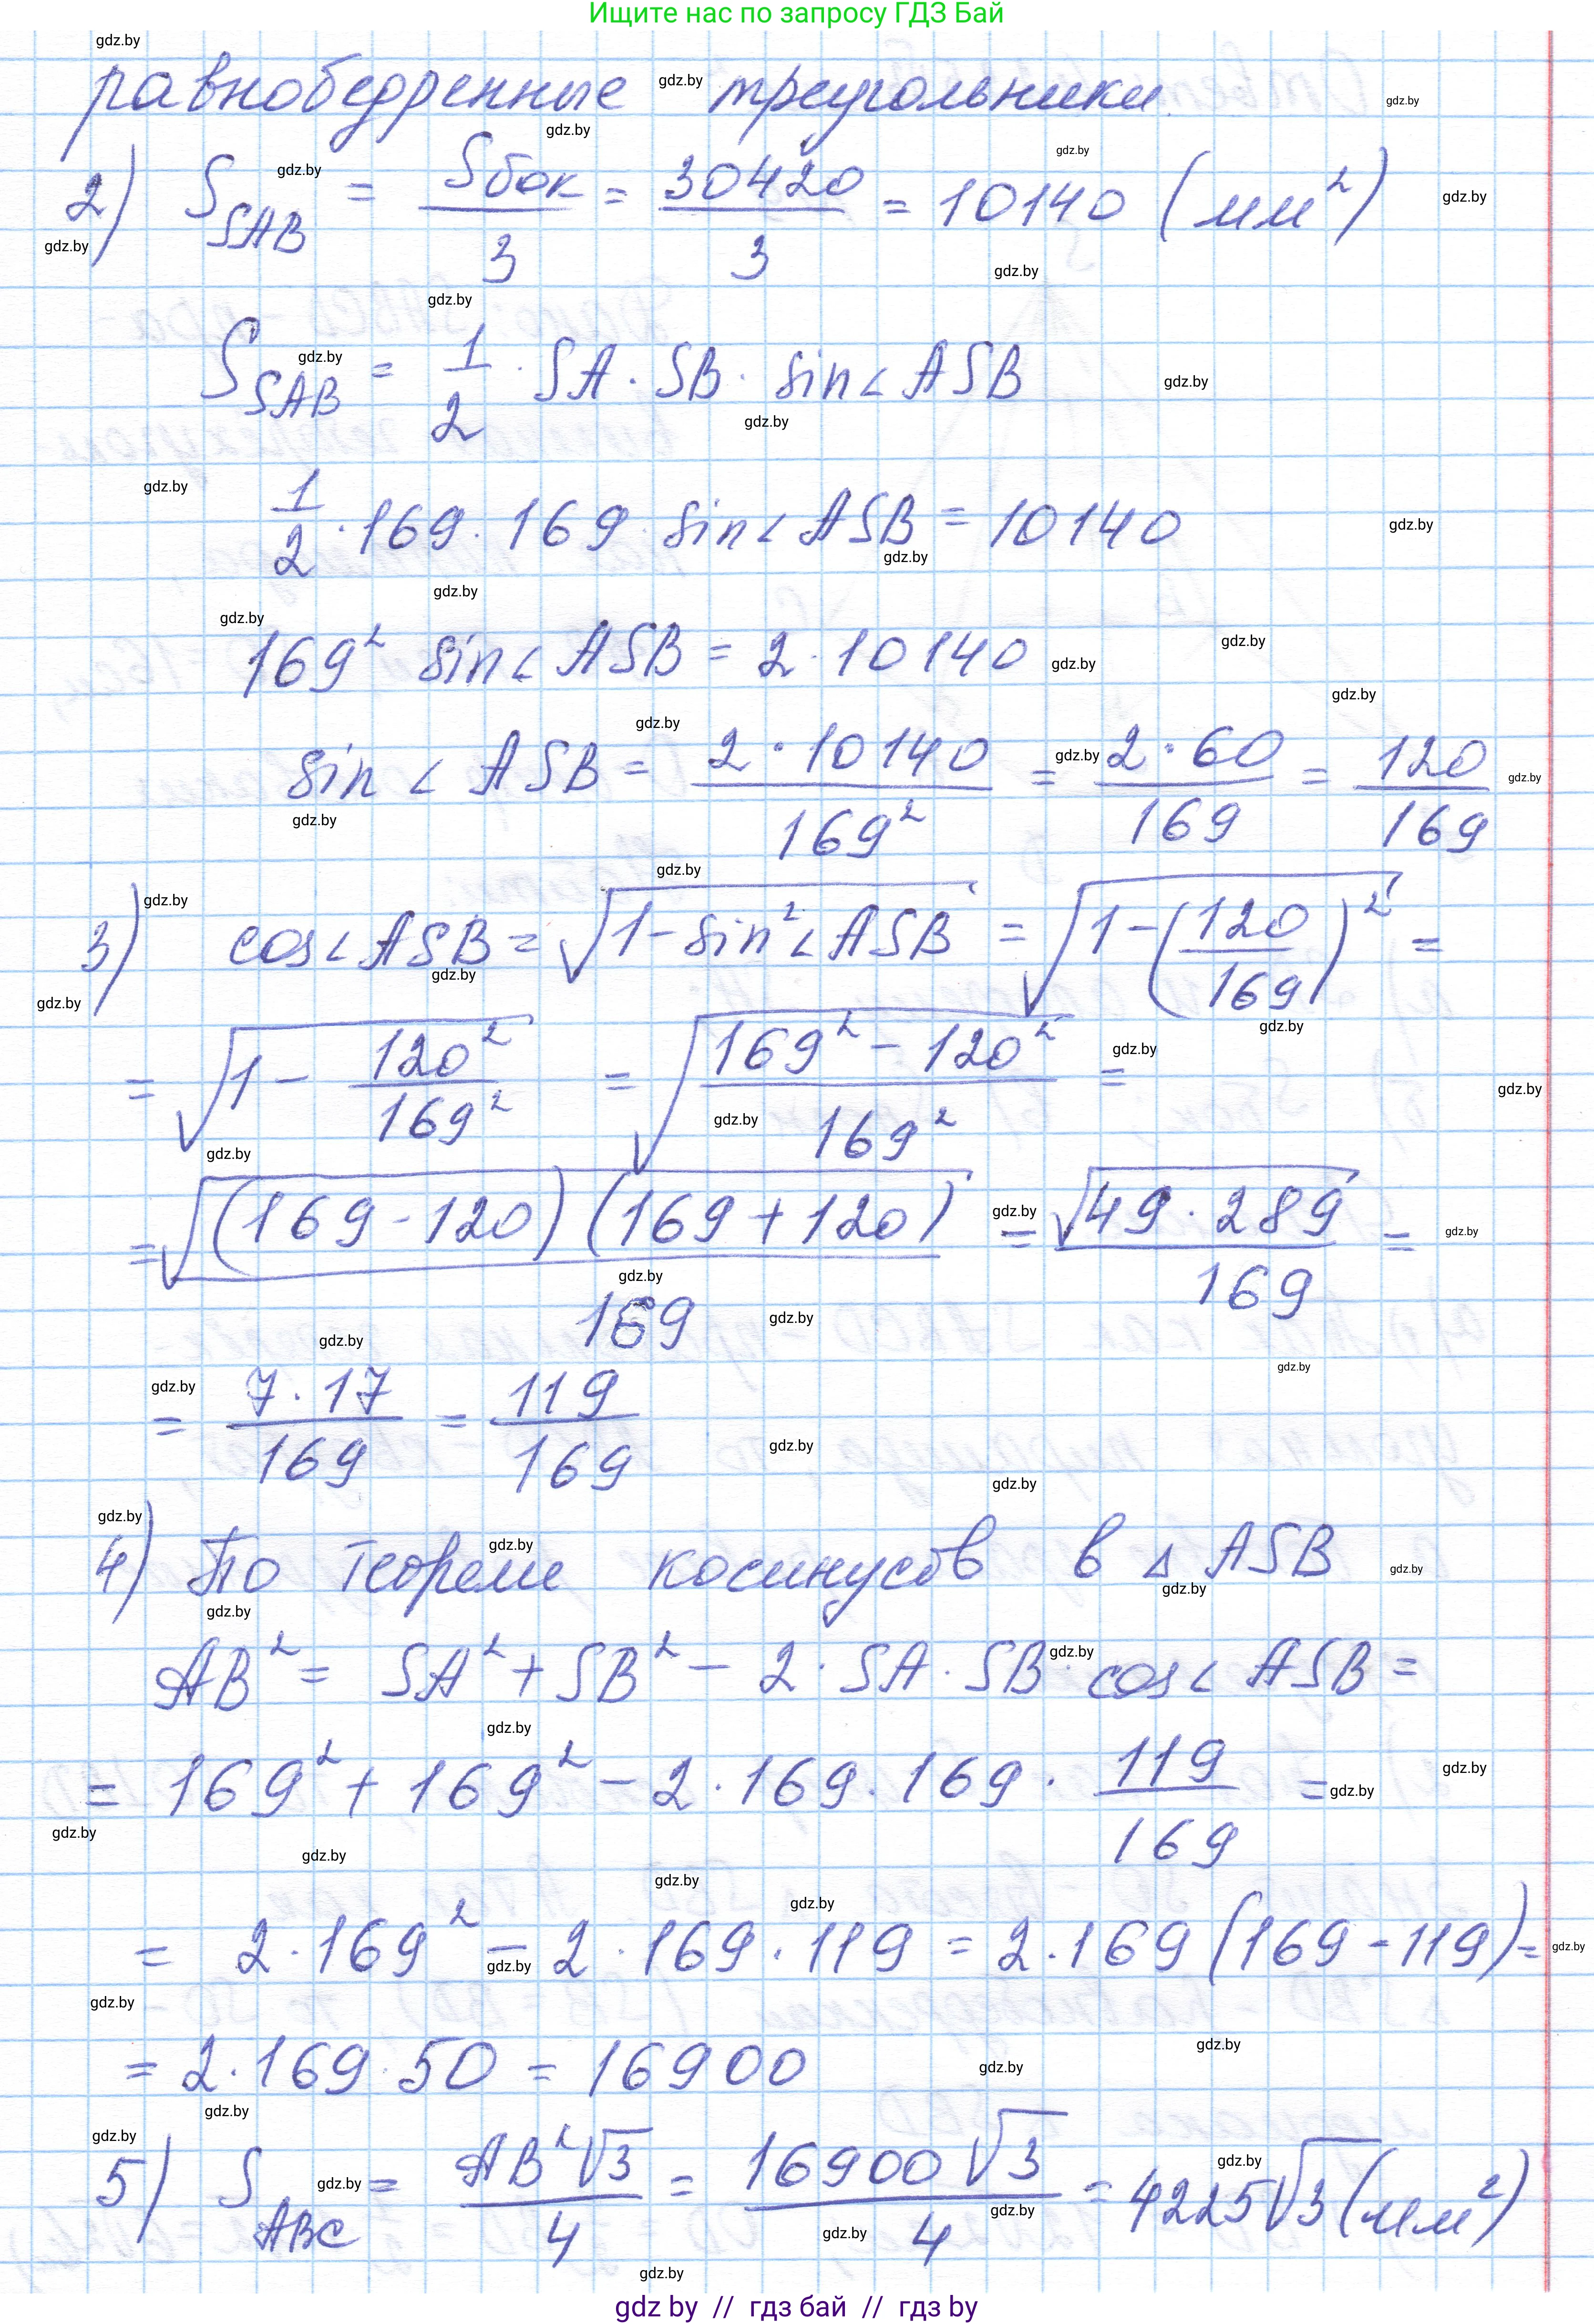 Ищите нас по запросу ГДЗ Бай
равнобедренные треугольники
2) S_SAB = Sбок/3 = 30420/3 = 10140 (мм²)
S_SAB = 1/2 · SA · SB · sin∠ASB
1/2 · 169 · 169 · sin∠ASB = 10140
169² sin∠ASB = 2 · 10140
sin∠ASB = 2 · 10140/169² = 2 · 60/169 = 120/169
3) cos∠ASB = √(1 - sin²∠ASB) = √(1 - (120/169)²) =
= √(1 - 120²/169²) = √((169² - 120²)/169²) =
= √((169 - 120)(169 + 120))/169 = √(49 · 289)/169 =
= 7 · 17/169 = 119/169
4) По теореме косинусов в △ ASB
AB² = SA² + SB² - 2 · SA · SB · cos∠ASB =
= 169² + 169² - 2 · 169 · 169 · 119/169 =
= 2 · 169² - 2 · 169 · 119 = 2 · 169 (169 - 119) =
= 2 · 169 · 50 = 16900
5) S_ABC = AB²√3/4 = 16900√3/4 = 4225√3 (мм²)
gdz by // гдз бай // гдз by